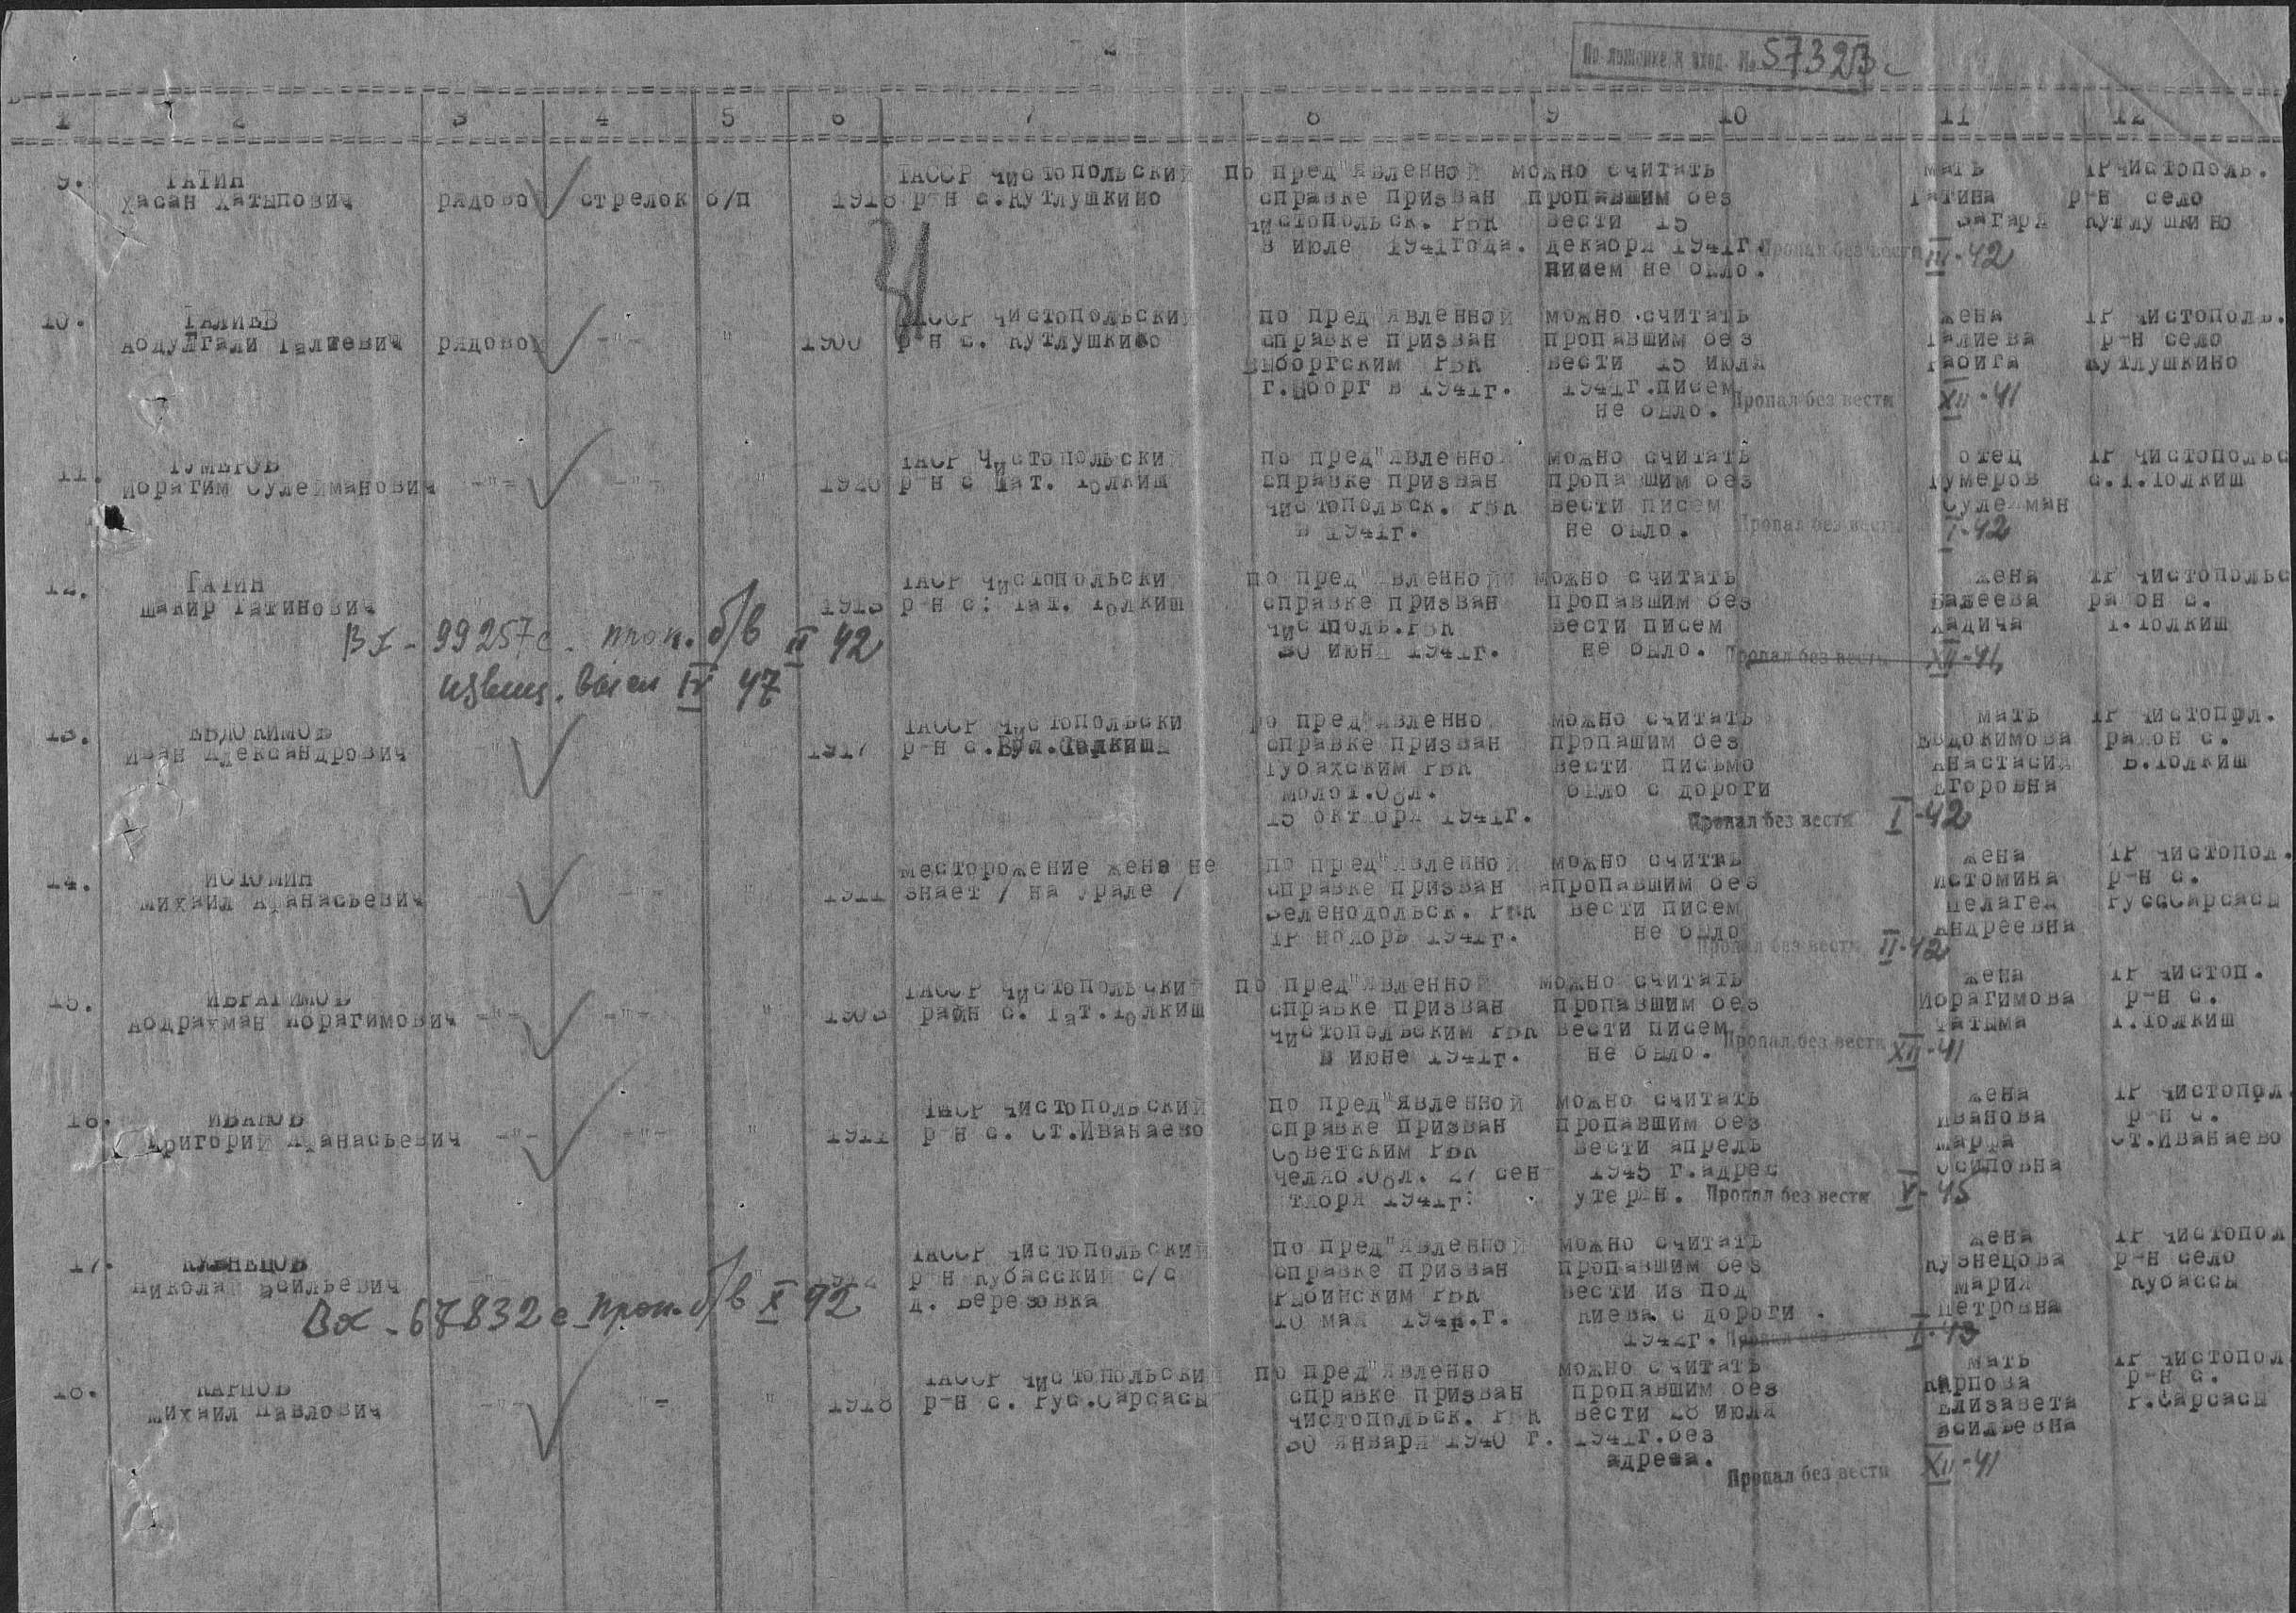 - 2 -
57323 с
1 2 3 4 5 6 7 8 9 10 11 12
9. ГАТИН
Хасан Хатыпович рядовой стрелок б/п
ТАССР Чистопольский
р-н с.Кутлушкино
по пред"явленной
справке призван
Чистопольск. РВК
в июле 1941года.
можно считать
пропавшим без
вести 15
декабря 1941г.
писем не было.
Пропал без вести III-42
мать
Гатина
Загара
ТР Чистополь.
р-н село
Кутлушкино
10. ГАЛИЕВ
Абдулгали Галиевич рядовой -"- " 1900
ТАССР Чистопольский
р-н с. Кутлушкино
по пред"явленной
справке призван
Выборгским РВК
г.Выборг в 1941г.
можно считать
пропавшим без
вести 15 июля
1941г.писем
не было.
Пропал без вести XII-41
жена
Галиева
Рабига
ТР Чистополь.
р-н село
Кутлушкино
11. ГУМЕРОВ
Ибрагим Сулейманович -"- -"- " 1920
ТАСР Чистопольски
р-н с Тат. Толкиш
по пред"явленной
справке призван
Чистопольск. РВК
в 1941г.
можно считать
пропавшим без
вести писем
не было.
Пропал без вести I-42
отец
Гумеров
Сулейман
ТР Чистопольс
с.Т.Толкиш
12. ГАТИН
Шакир Гатинович
ТАСР Чистопольски
р-н с. Тат. Толкиш
Вх - 99257с. проп. б/в II 42
извещ. IV 47
по пред"явленной
справке призван
РВК
30 июня 1941г.
можно считать
пропавшим без
вести писем
не было.
Пропал без вести XII-41
жена
Хадича
ТР Чистопольс
район с.
Т.Толкиш
13. ЕВДОКИМОВ
Иван Александрович " 1917
ТАССР Чистопольски
р-н с.
по пред"явленно
справке призван
Губахским РВК
Молот.Обл.
15 октября 1941г.
можно считать
пропашим без
вести письмо
было с дороги
Пропал без вести I-42
мать
Евдокимова
Анастасия
Егоровна
ТР Чистопол.
район с.
Б.Толкиш
14. ИСТОМИН
Михаил Афанасьевич " -"- " 1911
месторожение жена не
знает / на Урале /
по пред"явленной
справке призван
Зеленодольск. РВК
ТР ноябрь 1941г.
можно считать
пропавшим без
вести писем
не было
Пропал без вести II-42
жена
Истомина
Пелагея
Андреевна
ТР Чистопол.
р-н с.
РуссСарсасы
15. ИБРАГИМОВ
Абдрахман Ибрагимович -"- -"- "
ТАССР Чистопольский
район с. Тат.Толкиш
по пред"явленной
справке призван
Чистопольским РВК
в июне 1941г.
можно считать
пропавшим без
вести писем
не было.
Пропал без вести XII-41
жена
Ибрагимова
Фатыма
ТР Чистоп.
р-н с.
Т.Толкиш
16. ИВАНОВ
Григорий Афанасьевич -"- -"- " 1911
ТАСР Чистопольский
р-н с. Ст.Иванаево
по пред"явленной
справке призван
Советским РВК
Челяб.Обл. 27 сен
тября 1941г.
можно считать
пропавшим без
вести апрель
1945 г.адрес
утерян.
Пропал без вести V-45
жена
Иванова
Марфа
Осиповна
ТР Чистопол.
р-н с.
Ст.Иванаево
17. КУЗНЕЦОВ
Николай Васильевич
ТАССР Чистопольский
р-н Кубасский с/с
д. Березовка
Вх - 67832 с проп. б/в X 42
по пред"явленной
справке призван
Рыбинским РВК
10 мая
можно считать
пропавшим без
вести из под
Киева с дороги.
1942г.
Пропал без вести I-43
жена
Кузнецова
Мария
Петровна
ТР Чистопол
р-н село
Кубассы
18. КАРПОВ
Михаил Павлович -"- "- " 1918
ТАССР Чистопольский
р-н с. Рус.Сарсасы
по пред"явленно
справке призван
Чистопольск. РВК
30 января 1940 г.
можно считать
пропавшим без
вести 28 июля
1941г.без
адреса.
Пропал без вести XII-41
мать
Карпова
Елизавета
Васильевна
ТР Чистопол
р-н с.
Р.Сарсасы